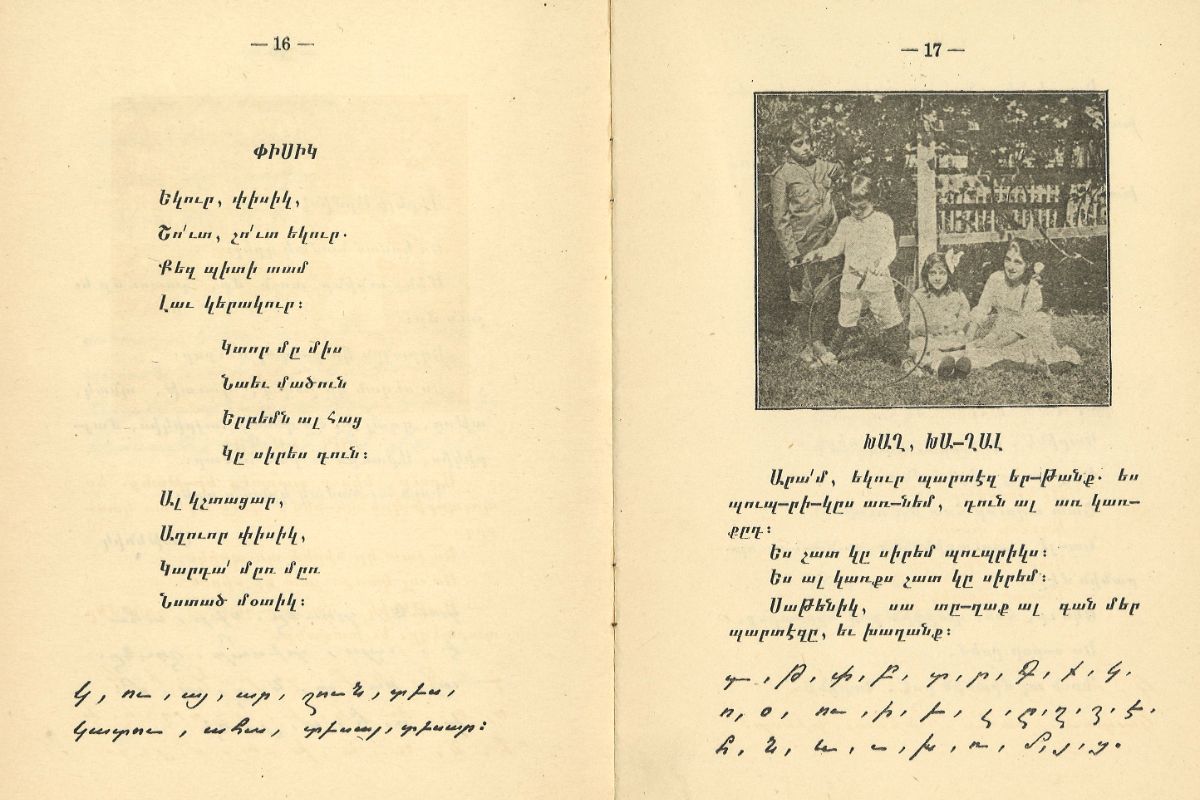 — 16 —
ՓԻՍԻԿ
Եկուր, փիսիկ,
Շո՛ւտ, շո՛ւտ եկուր.
Քեզ պիտի տամ
Լաւ կերակուր։
Կտոր մը միս
Նաեւ մածուն
Երբեմն ալ հաց
Կը սիրես դուն։
Ալ կշտացար,
Աղուոր փիսիկ,
Կարդա՛ մըռ մըռ
Նստած մօտիկ։
Կ, ու, այ, ար, շուն, տես,
կատու, ահա, տեսայ, տեսար։
— 17 —
ԽԱՂ, ԽԱ-ՂԱԼ
Արա՛մ, եկուր պարտէզ եր-թանք. ես
պուպ-րի-կըս առ-նեմ, դուն ալ առ կառ-
քըդ։
Ես շատ կը սիրեմ պուպրիկս։
Ես ալ կառքս շատ կը սիրեմ։
Սաթենիկ, սա տը-ղաք ալ գան մեր
պարտէզը, եւ խաղանք։